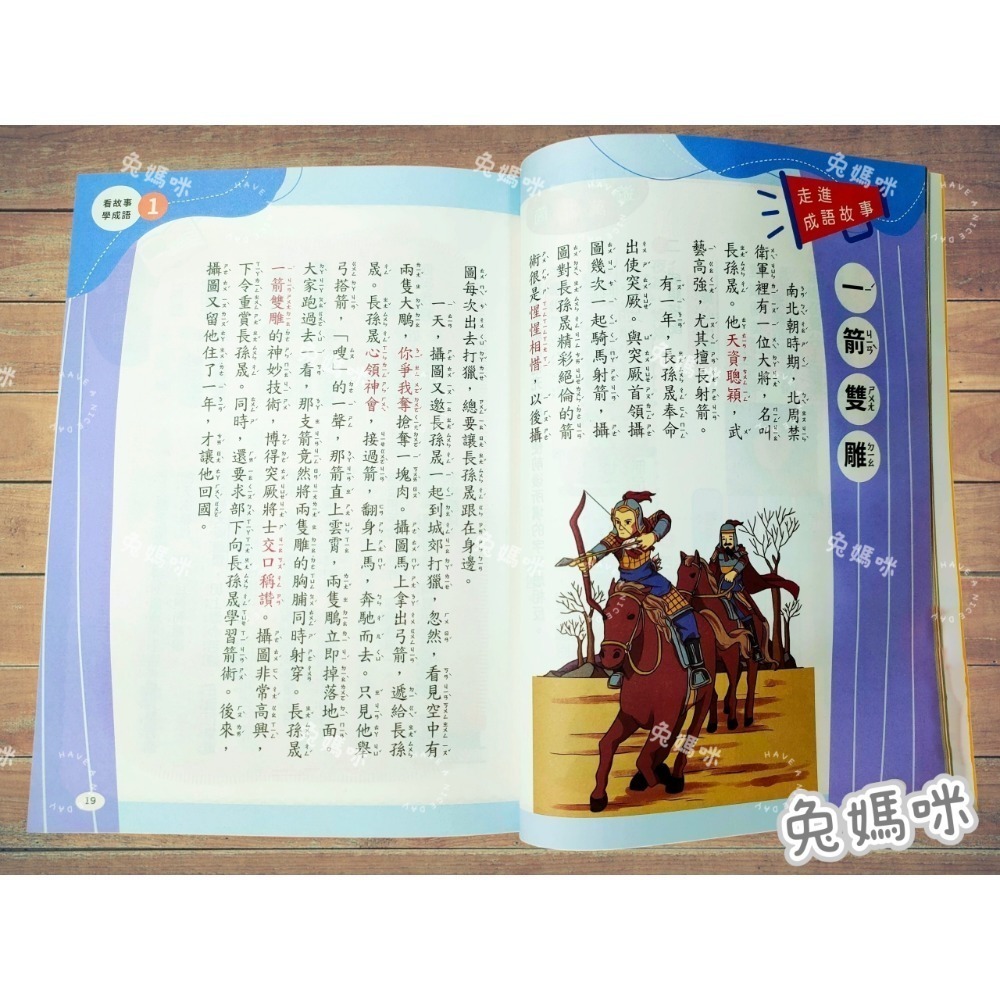 走進
成語故事
一箭雙雕
南北朝時期 北周禁
衛軍裡有一位大將，名叫
長孫晟。他天資聰穎，武
藝高強，尤其擅長射箭。
有一年，長孫晟奉命
出使突厥。與突厥首領攝
圖幾次一起騎馬射箭，攝
圖對長孫晟精彩絕倫的箭
術很是惺惺相惜，以後攝
圖每次出去打獵，總要讓長孫晟跟在身邊。
一天，攝圖又邀長孫晟一起到城郊打獵，忽然，看見空中有
兩隻大鵰，你爭我奪搶奪一塊肉。攝圖馬上拿出弓箭，遞給長孫
晟。長孫晟心領神會，接過箭，翻身上馬，奔馳而去。只見他舉
弓搭箭，「嗖」的一聲，那箭直上雲霄，兩隻鵰立即掉落地面
大家跑過去一看，那支箭竟然將兩隻雕的胸脯同時射穿。長孫晟
一箭雙雕的神妙技術，博得突厥將士交口稱讚。攝圖非常高興，
下令重賞長孫晟。同時，還要求部下向長孫晟學習箭術。後來，
攝圖又留他住了一年，才讓他回國。
看故事
學成語
1
19
兔媽咪
HAVE A NICE DAY